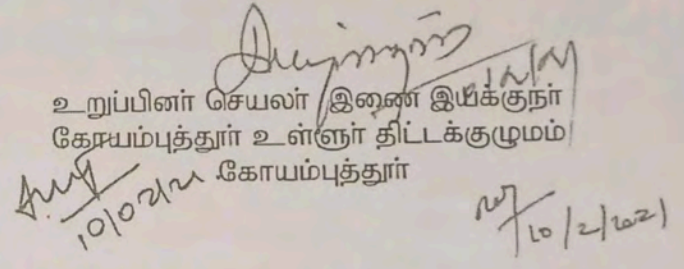 உறுப்பினர் செயலர் / இணை இயக்குநர்
கோயம்புத்தூர் உள்ளூர் திட்டக்குழுமம்
கோயம்புத்தூர்
10/02/21
10/2/2021